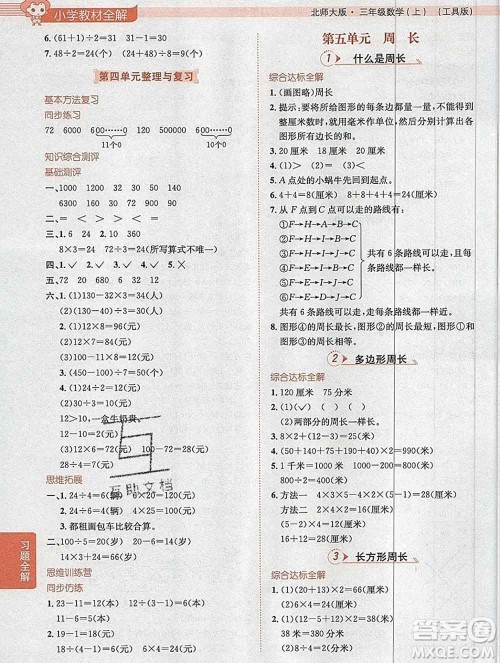 小学教材全解
北师大版·三年级数学(上) (工具版)
6. (61+1)÷2=31 31-1=30
7. (48÷8)÷2=3
第四单元整理与复习
基本方法复习
同步练习
72 6000 600……0 600……0
11个0 10个0
知识综合测评
基础测评
一、1000 1200 32 30 5600
130 900 630 7 140
二、> = < > = <
三、10×3=30 16×4=64
8×3=24 72÷8=9(所写算式不唯一)
四、1.✓ 2.✓ 3.✓ 4.✓ 5.✕
五、720 24 30 72
六、1. (1)(130-32)×3=294(元)
(2)(130-90)×8=320(元)
2. (1)12×8=96(元)
(2)18÷3=6(元) 12÷6=2
3. (1)(450-100)÷5=70(元)
4. (1)24÷2=12(元)
(2)30÷3=10(元)
12>10,一盒牛奶贵。
(3)12-10=2(元)
(4)12×6=72(元) 100-72=28(元)
5. 24÷8×6=18(元)
思维拓展
一、1. 24÷4=6(辆) 6×20=120(元)
2. 24÷6=4(辆) 4×30=120(元)
3. 都租面包车比较合算。
二、100-10×8=20(岁) 20÷10=2(岁)
16÷2×3=24(元)
思维训练营
同步仿练
1. 23-11=12(本) 12÷2=6(本)
11-6=5(本)
2. 24-18=6(元) 18÷6=3(元)
习题全解
第五单元 周 长
1 什么是周长
综合达标全解
1. (画图略)周长
2. 提示:要将所给图形的每条边都量一量,不能是
整厘米数时,就用毫米作单位,然后分别计算出各
图形所有边长的和。
3. 20厘米 18厘米 15厘米
4. (1)✓ (2)✓ (3)✕
5. A点处的小蜗牛先回到起点。
6. 9+8+4=21(厘米) 8+8+4+4=24(厘米)
7. 从F点到C点可以走的路线有:
①F→H→A→B→C
②F→G→A→B→C
③F→G→D→B→C
④F→H→I→B→C
⑤F→H→I→J→C
共有6条路线可以走,它们的周长相等。
8. 图形④的周长最长,图形②的周长最短,图形①和
图形⑧的周长一样长。
2 多边形周长
综合达标全解
1. 120厘米 75分米
2. (1)✓ (2)✓ (3)✓
3. 8×2+(8+2)×2=36(厘米)
4. 两部分的周长一样长。
5. 1千米=1000米 1000-52×4=792(米)
6. 方法一 4×3×5-4×2×(5-1)=28(分米)
方法二 4×5-2×4+4×4=28(分米)
3 长方形周长
综合达标全解
1. (1)(20+13)×2=66(厘米)
(2)(12+7)×2=38(厘米)
38厘米=380毫米